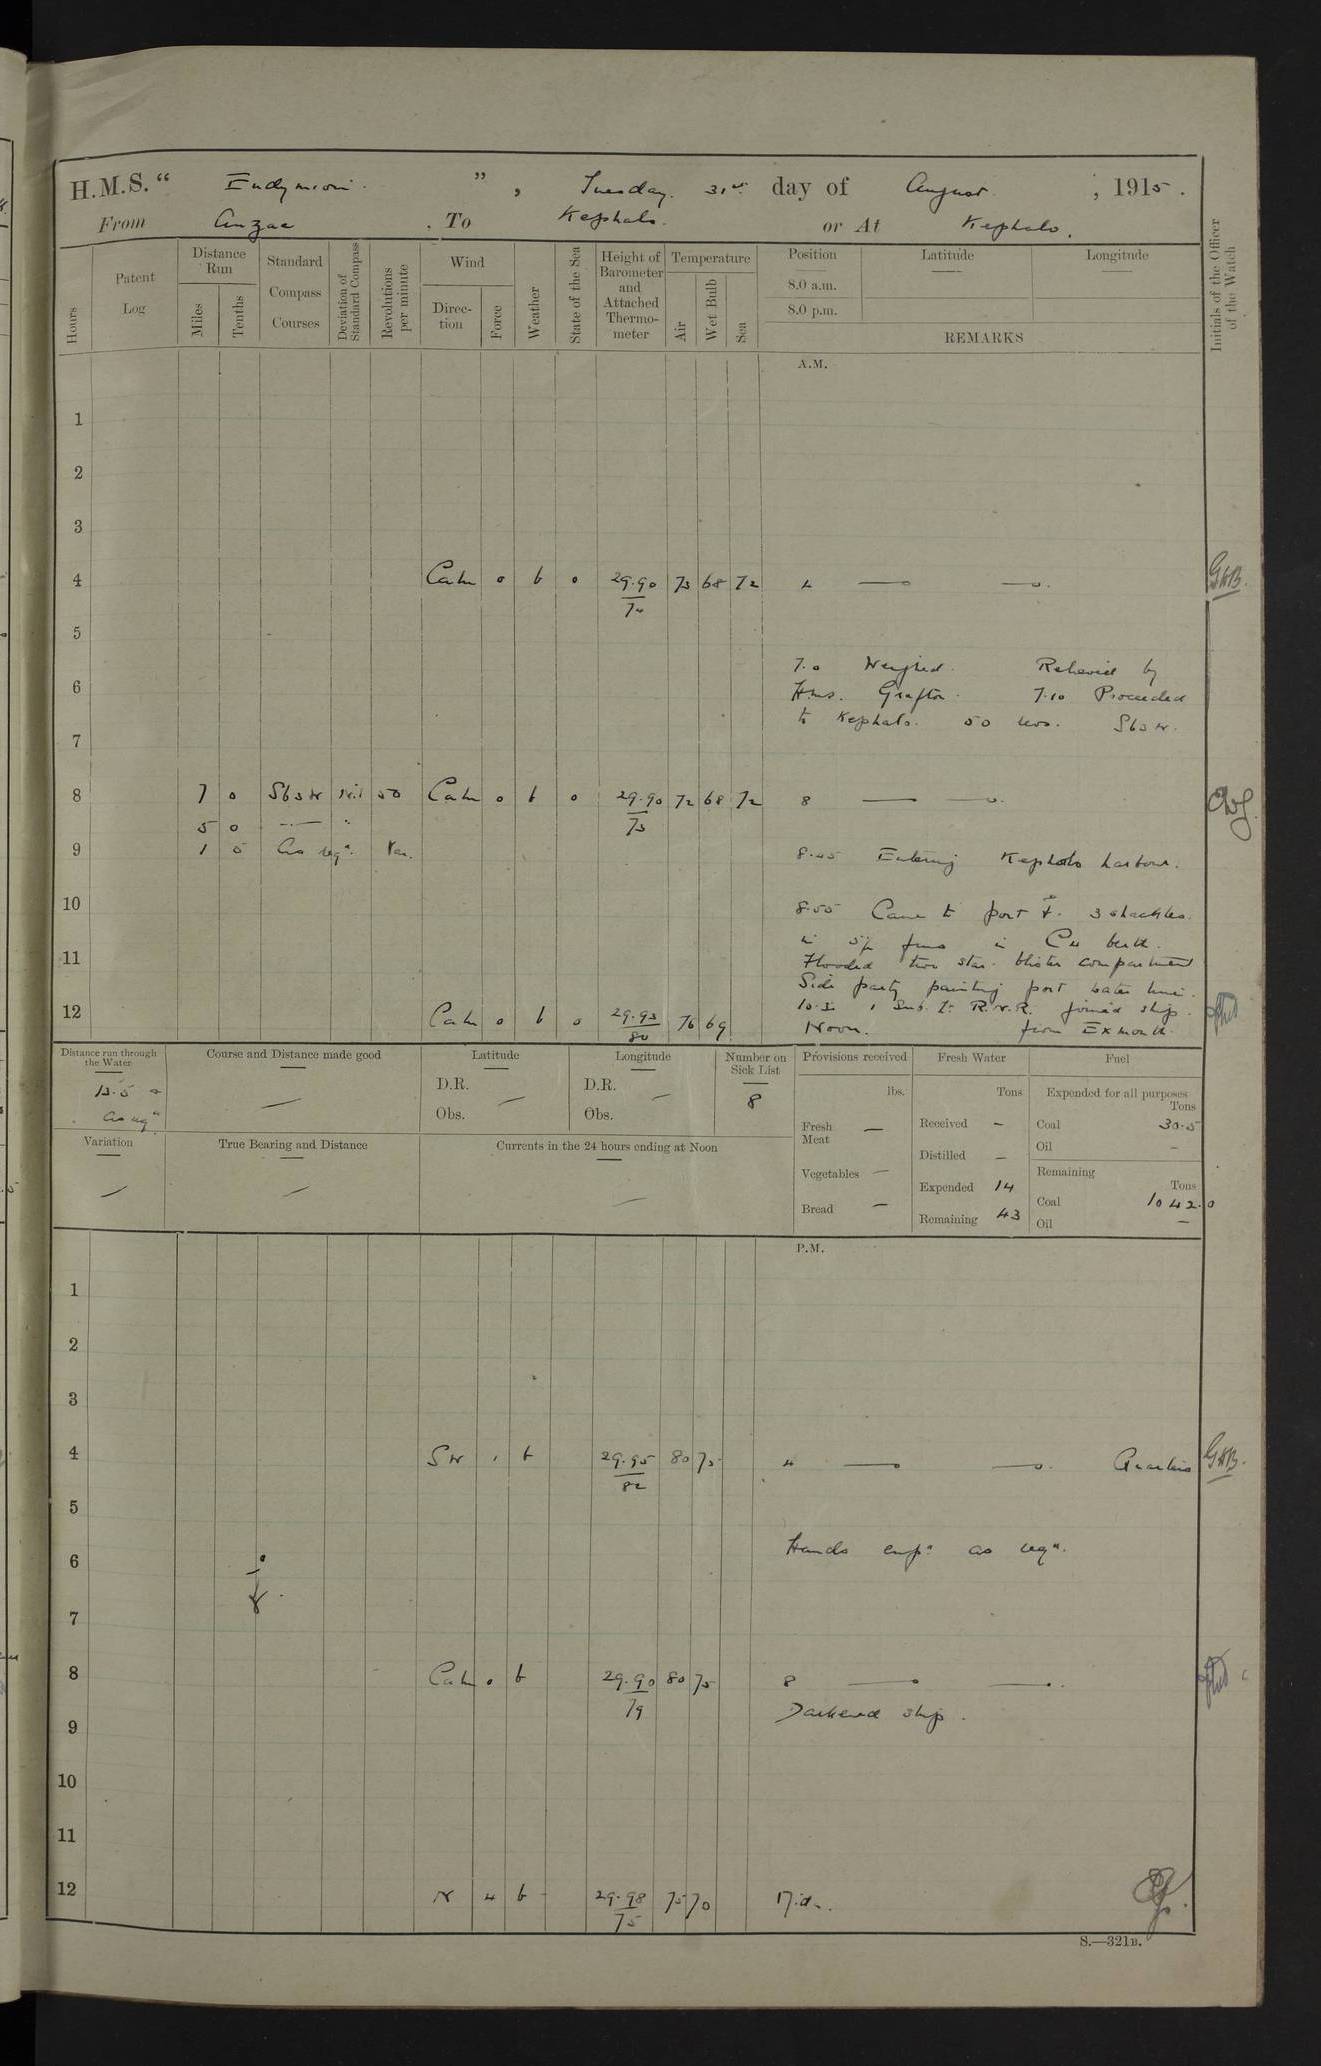 H.M.S. “ Endymion. ” , Tuesday. 31st day of August , 1915 .
From Anzac . To Kephalo. or At Kephalo.
Hours
Patent Log
Distance Run
Miles
Tenths
Standard Compass Courses
Deviation of Standard Compass
Revolutions per minute
Wind
Direction
Force
Weather
State of the Sea
Height of Barometer and Attached Thermometer
Temperature
Air
Wet Bulb
Sea
Position
8.0 a.m.
8.0 p.m.
Latitude
Longitude
REMARKS
Initials of the Officer of the Watch
A.M.
1
2
3
4 Calm 0 b 0 29.90 73 68 72 4 — —. GHB.
74
5
7.0 Weighed. Relieved by
6 H.M.S. Grafton. 7.10 Proceeded
to Kephalo. 50 revs. S63W.
7
8 7 0 S63W Nil 50 Calm 0 b 0 29.90 72 68 72 8 — —.
73
5 0 — "
9 1 5 As reqd. Var. 8.45 Entering Kephalo harbour.
10 8.55 Came to port 3 shackles.
in 5½ fms in C4 berth.
11 Flooded two star. blister compartment
Side party painting port water line.
10.30 1 Sub. Lt. R.N.R. joined ship.
12 Calm 0 b 0 29.93 76 69 Noon. from Exmouth.
80
Distance run through the Water
13.5 &
As reqd
Course and Distance made good
—
Latitude
D.R. —
Obs.
Longitude
D.R. —
Obs.
Number on Sick List
8
Provisions received
lbs.
Fresh Meat —
Vegetables —
Bread —
Fresh Water
Tons
Received —
Distilled —
Expended 14
Remaining 43
Fuel
Expended for all purposes
Tons
Coal 30.5
Oil —
Remaining
Tons
Coal 1042.0
Oil —
Variation
—
True Bearing and Distance
—
Currents in the 24 hours ending at Noon
—
P.M.
1
2
3
4 SW 1 b 29.95 80 75 4 — —. Quarters GHB.
82
5
6 Hands empd as reqd.
7
8 Calm 0 b 29.90 80 75 8 — —.
79
Darkened ship.
9
10
11
12 N 4 b 29.98 75 70 Mid.
75
S.—321B.